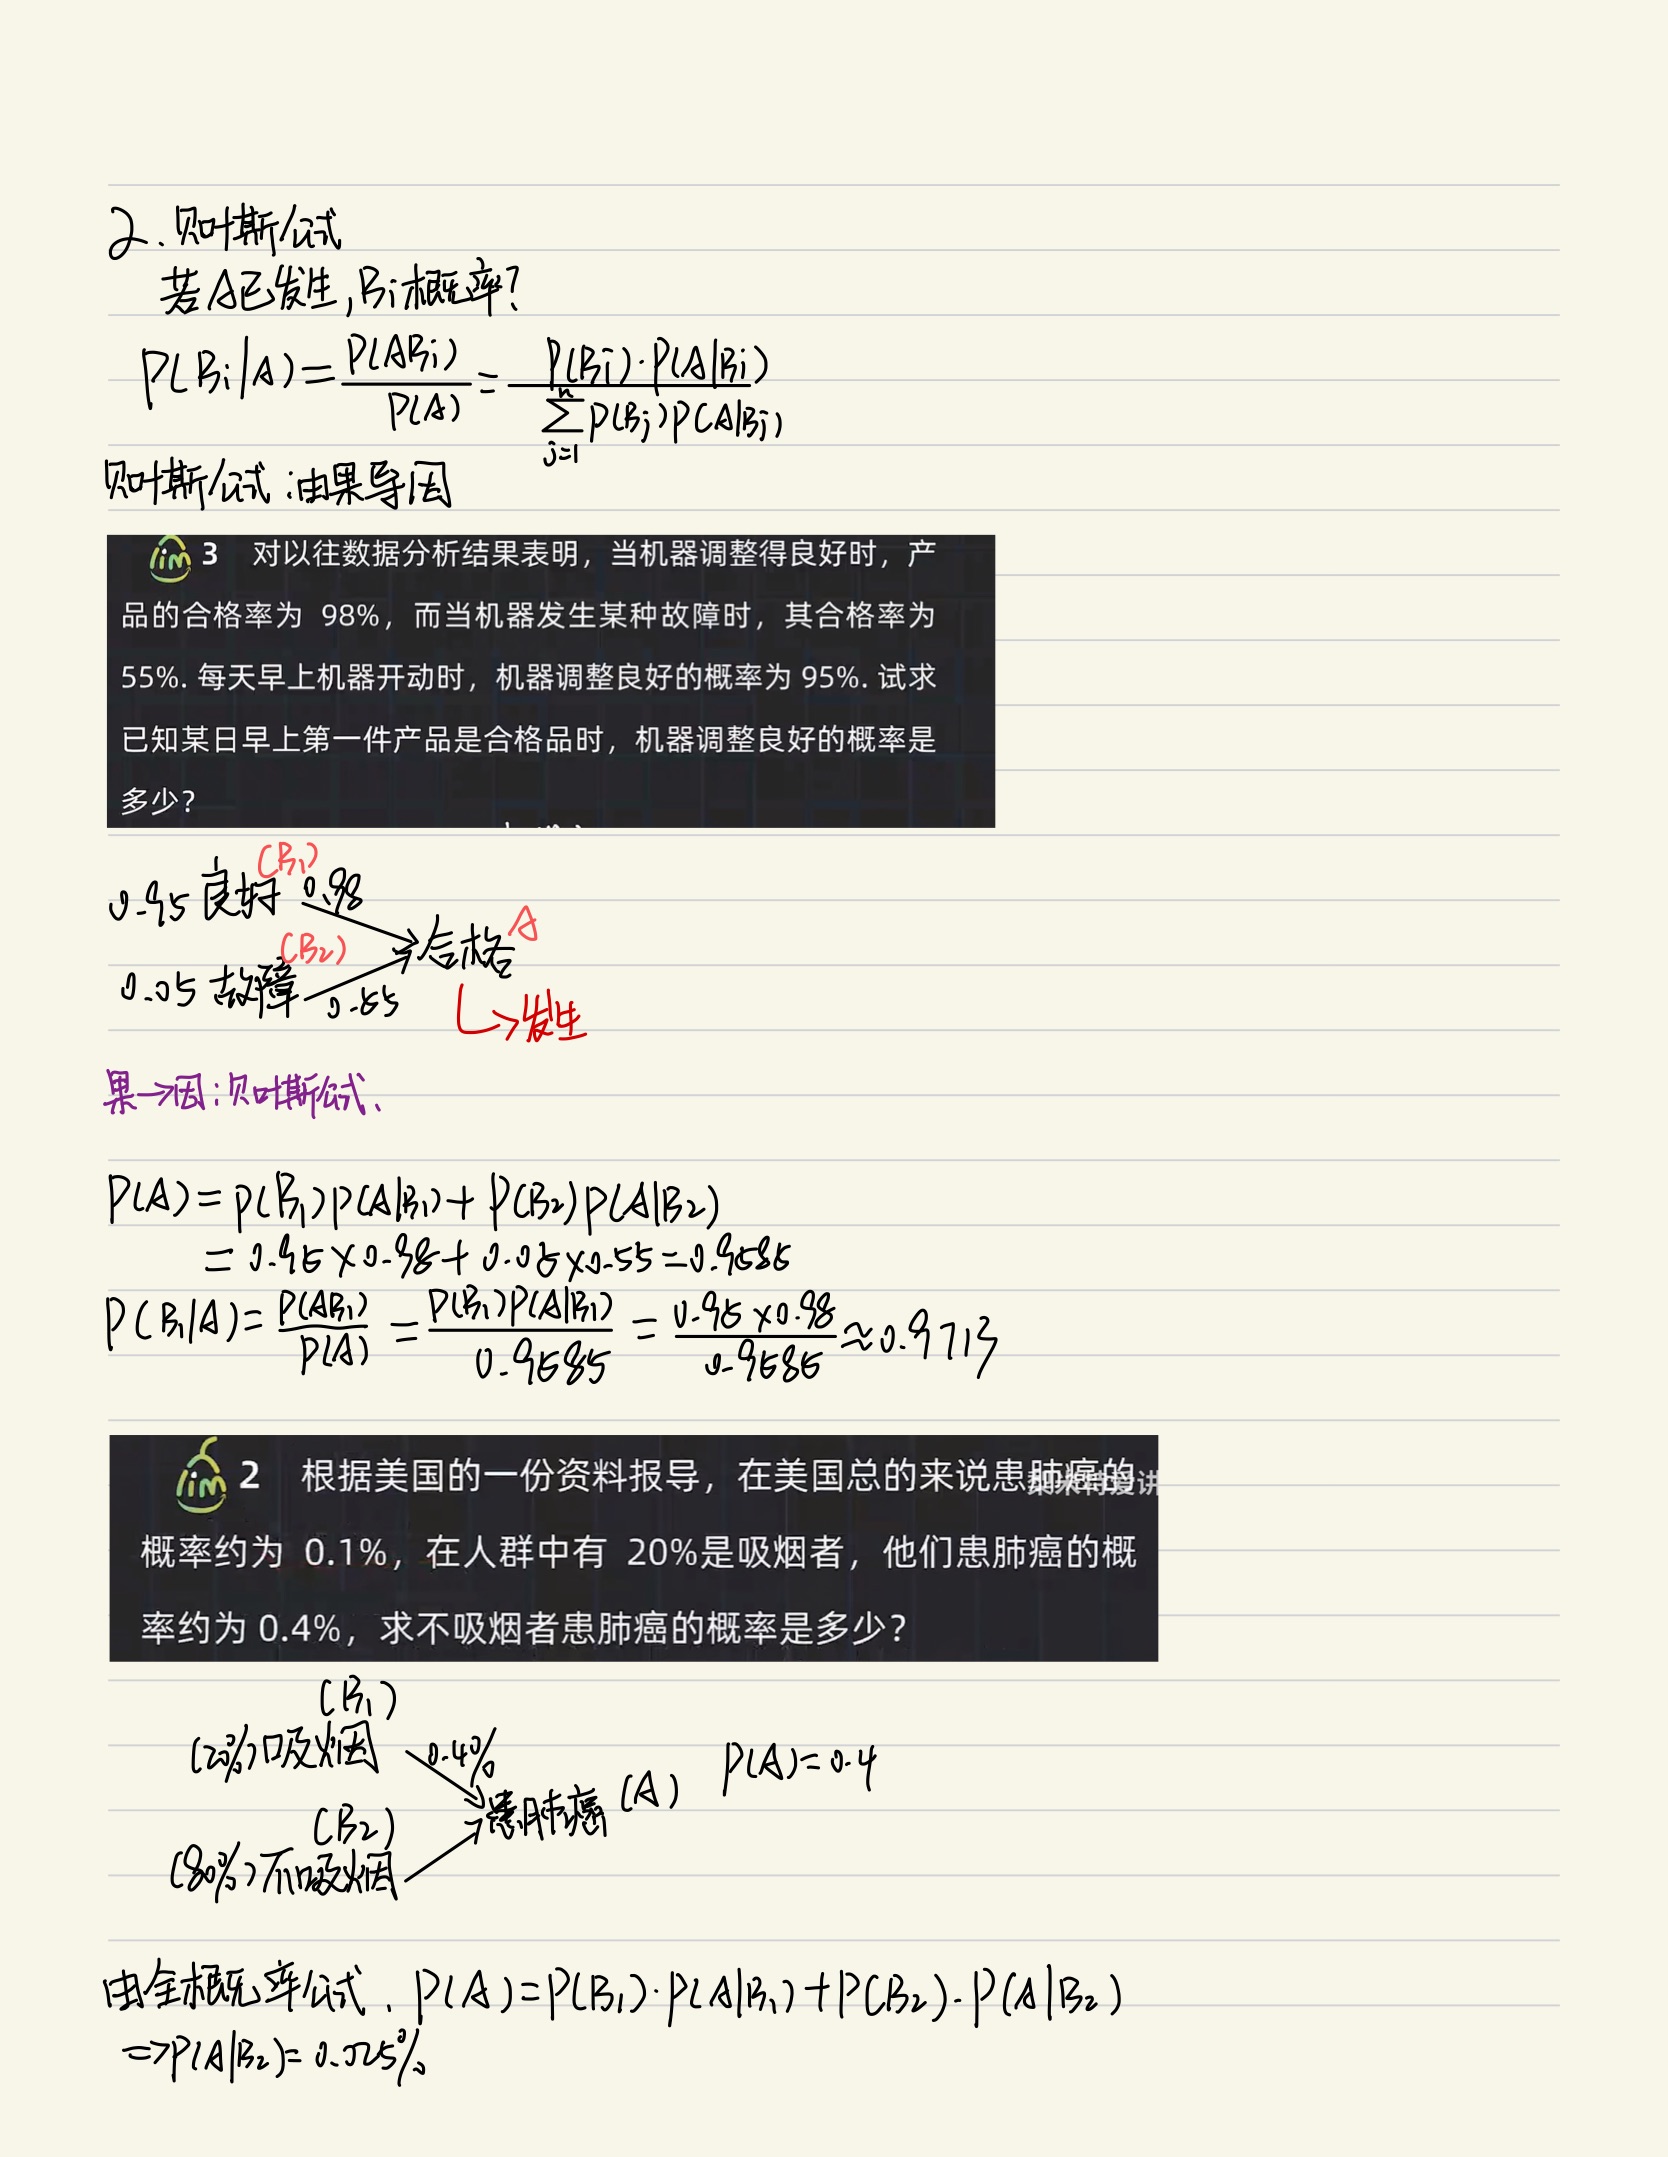 2.贝叶斯公式
若A已发生,Bi概率?
P(Bi|A)=P(ABi)/P(A)=P(Bi)·P(A|Bi)/∑(j=1→n)P(Bj)P(A|Bj)
贝叶斯公式:由果导因
lim 3 对以往数据分析结果表明，当机器调整得良好时，产
品的合格率为 98%，而当机器发生某种故障时，其合格率为
55%. 每天早上机器开动时，机器调整良好的概率为 95%. 试求
已知某日早上第一件产品是合格品时，机器调整良好的概率是
多少？
(B1)
0.95 良好 0.98
合格 A
(B2)
0.05 故障 0.55
↳发生
果→因:贝叶斯公式、
P(A)=P(B1)P(A|B1)+P(B2)P(A|B2)
=0.95×0.98+0.05×0.55=0.9585
P(B1|A)=P(AB1)/P(A)=P(B1)P(A|B1)/0.9585=0.95×0.98/0.9585≈0.9713
lim 2 根据美国的一份资料报导，在美国总的来说患肺癌的
概率约为 0.1%，在人群中有 20%是吸烟者，他们患肺癌的概
率约为 0.4%，求不吸烟者患肺癌的概率是多少？
(B1)
(20%)吸烟 0.4%
患肺癌 (A) P(A)=0.4
(B2)
(80%)不吸烟
由全概率公式、P(A)=P(B1)·P(A|B1)+P(B2)·P(A|B2)
⇒P(A|B2)=0.025%